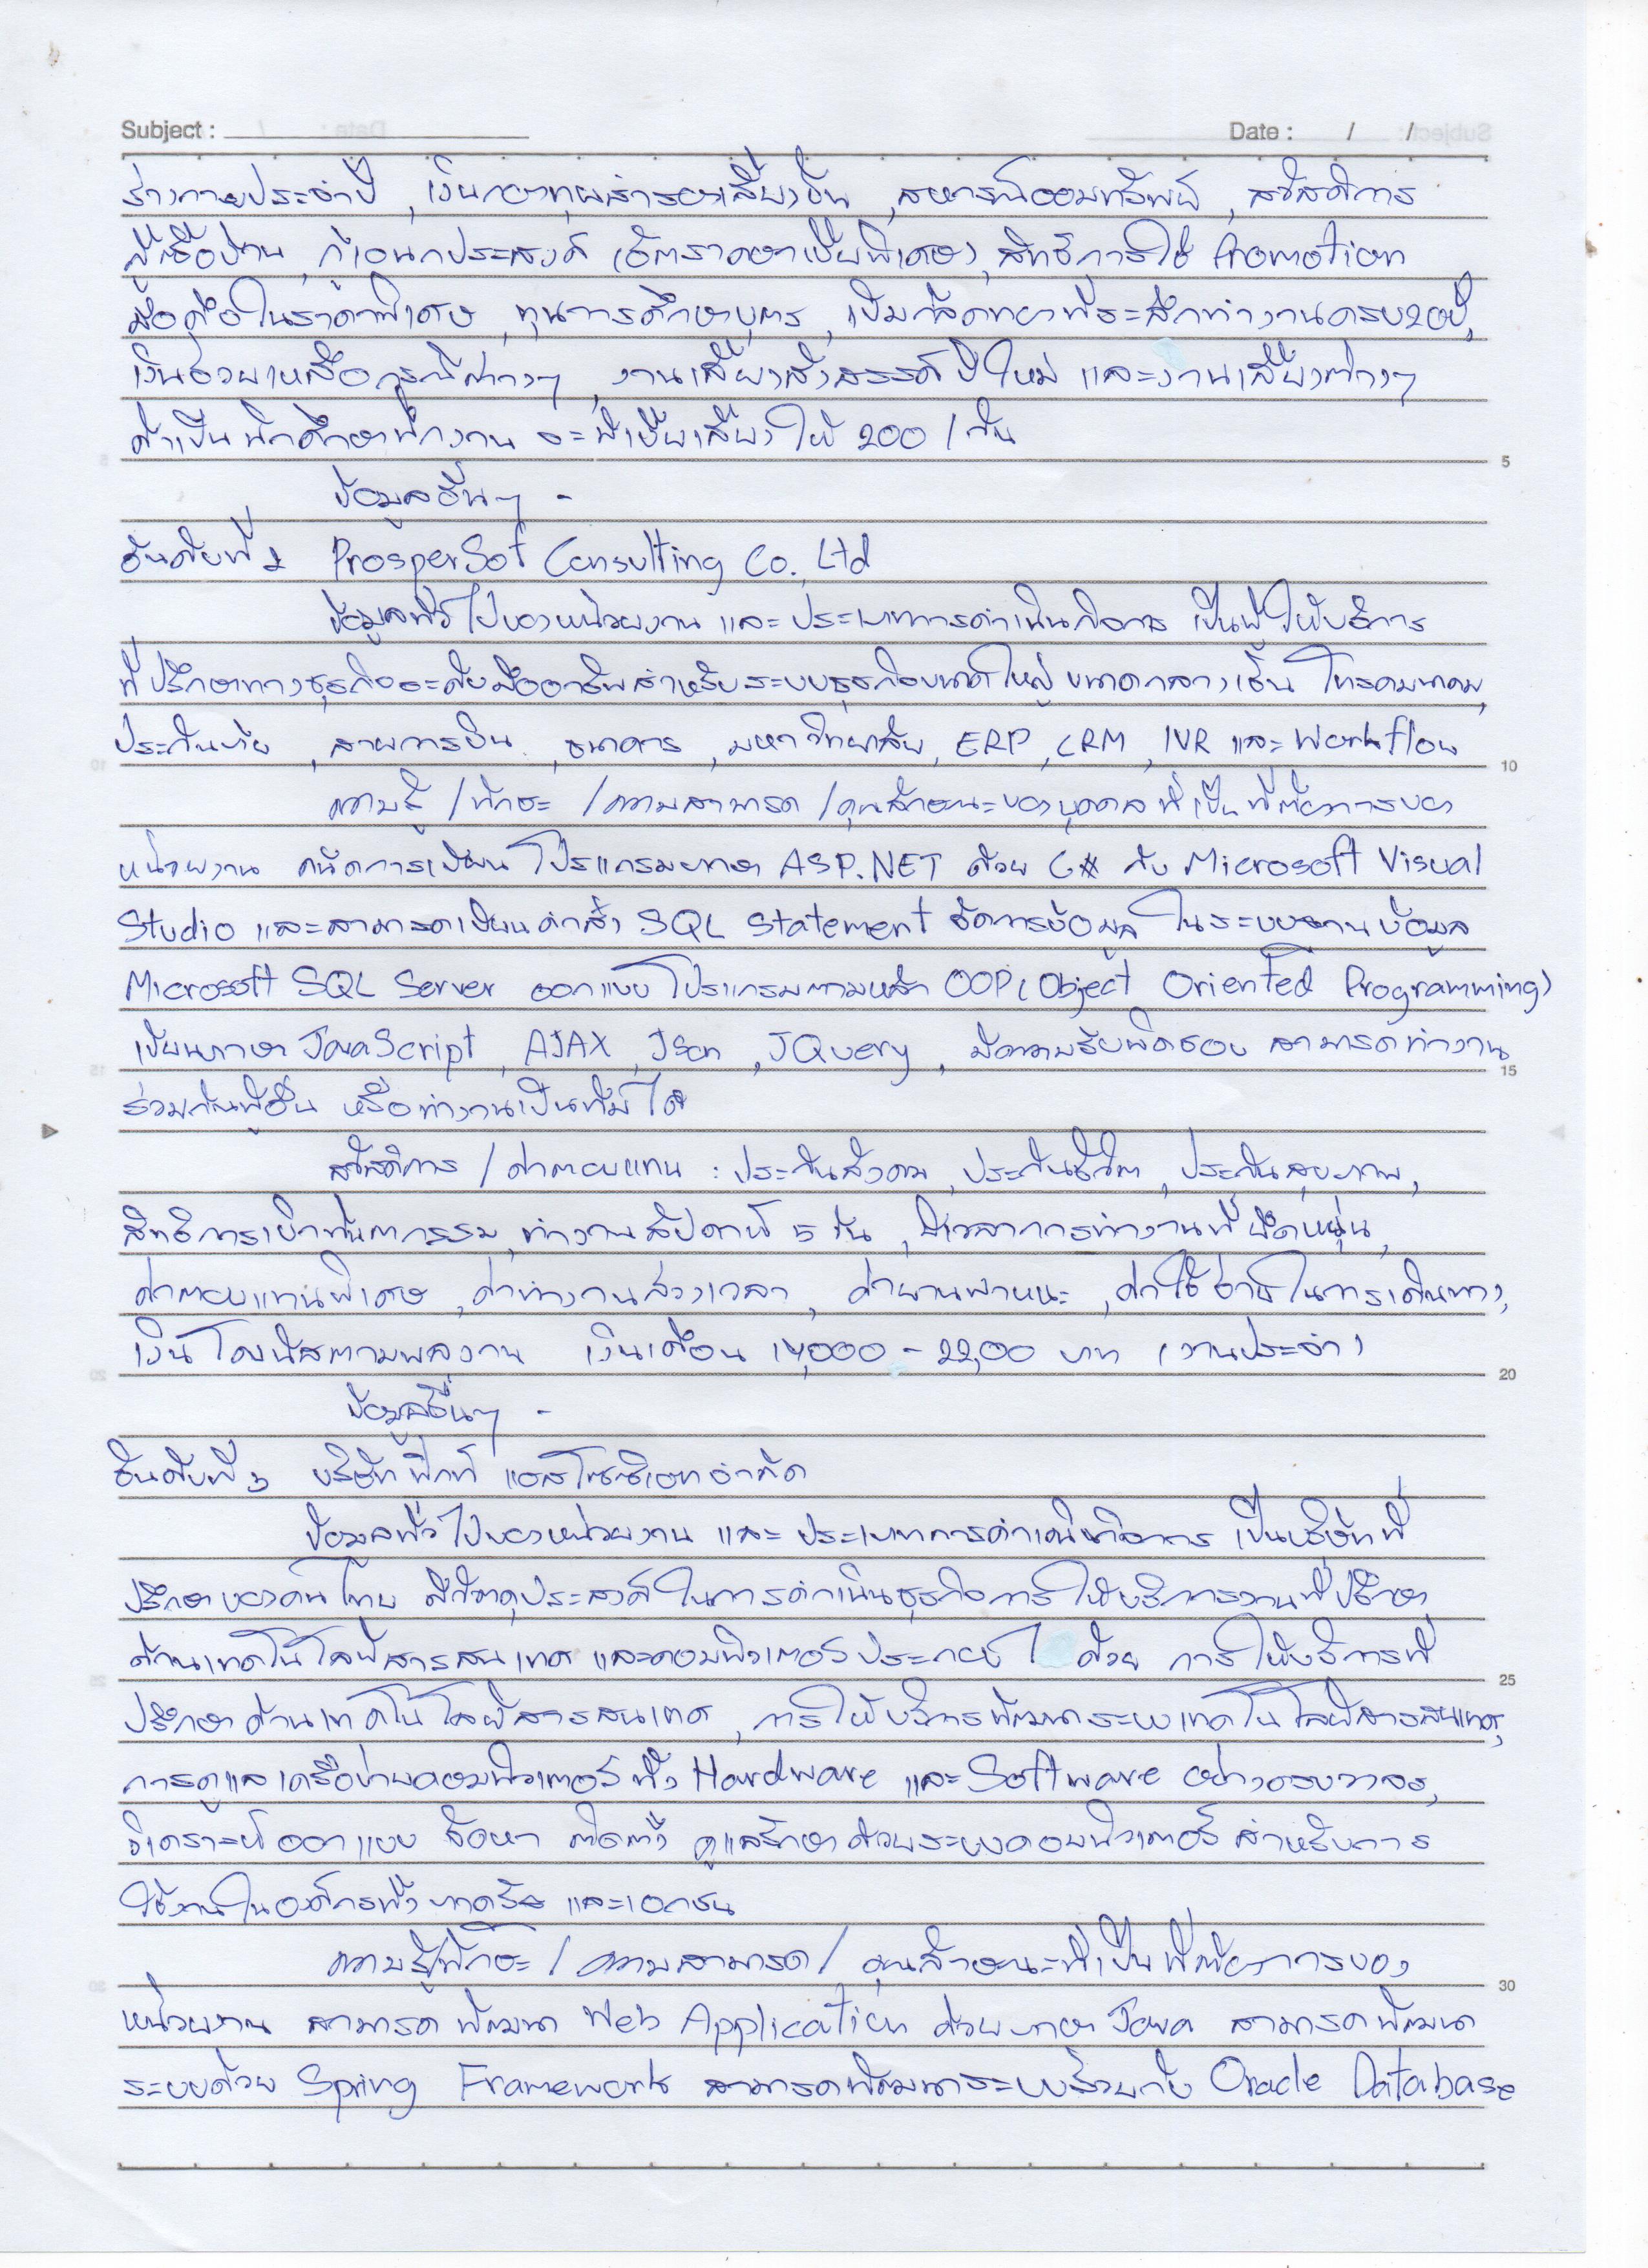 Subject : Date : / /
ร่างกายประจำปี , เงินกองทุนสำรองเลี้ยงชีพ , สหกรณ์ออมทรัพย์ , สวัสดิการ
กู้ซื้อบ้าน , กู้เอนกประสงค์ (อัตราดอกเบี้ยพิเศษ) , สิทธิการใช้ Promotion
มือถือในราคาพิเศษ , ทุนการศึกษาบุตร , เข็มกลัดทองที่ระลึกทำงานครบ 20 ปี,
เงินช่วยเหลือกรณีต่างๆ , งานเลี้ยงสังสรรค์ปีใหม่ และงานเลี้ยงต่างๆ
ถ้าเป็นนักศึกษาฝึกงาน จะมีเบี้ยเลี้ยงให้ 200 / วัน
5
ข้อมูลอื่นๆ -
อันดับที่ 2 ProsperSof Consulting Co., Ltd
ข้อมูลทั่วไปของหน่วยงาน และ ประเภทการดำเนินกิจการ เป็นผู้ให้บริการ
ที่ปรึกษาทางธุรกิจระดับมืออาชีพสำหรับระบบธุรกิจขนาดใหญ่ ขนาดกลาง เช่น โทรคมนาคม,
ประกันภัย , สายการบิน , ธนาคาร , มหาวิทยาลัย, ERP , CRM , IVR และ Workflow
10
ความรู้ / ทักษะ / ความสามารถ / คุณลักษณะของบุคคลที่เป็นที่ต้องการของ
หน่วยงาน ถนัดการเขียนโปรแกรมภาษา ASP.NET ด้วย C# กับ Microsoft Visual
Studio และสามารถเขียนคำสั่ง SQL Statement จัดการข้อมูลในระบบฐานข้อมูล
Microsoft SQL Server ออกแบบโปรแกรมตามหลัก OOP (Object Oriented Programming)
เขียนภาษา JavaScript , AJAX , Json , JQuery , มีความรับผิดชอบ สามารถทำงาน
15
ร่วมกับผู้อื่น หรือทำงานเป็นทีมได้
สวัสดิการ / ค่าตอบแทน : ประกันสังคม , ประกันชีวิต , ประกันสุขภาพ,
สิทธิการเบิกทันตกรรม , ทำงานสัปดาห์ 5 วัน , มีเวลาการทำงานที่ยืดหยุ่น,
ค่าตอบแทนพิเศษ , ค่าทำงานล่วงเวลา , ค่ายานพาหนะ , ค่าใช้จ่ายในการเดินทาง,
เงินโบนัสตามผลงาน เงินเดือน 14,000 - 22,00 บาท (งานประจำ)
20
ข้อมูลอื่นๆ -
อันดับที่ 3 บริษัท ฟีกท์ แอสโซซิเอท จำกัด
ข้อมูลทั่วไปของหน่วยงาน และ ประเภทการดำเนินกิจการ เป็นบริษัทที่
ปรึกษาของคนไทย มีวัตถุประสงค์ในการดำเนินธุรกิจการให้บริการงานที่ปรึกษา
ด้านเทคโนโลยีสารสนเทศ และคอมพิวเตอร์ ประกอบไ ด้วย การให้บริการที่
25
ปรึกษาด้านเทคโนโลยีสารสนเทศ , การให้บริการพัฒนาระบบเทคโนโลยีสารสนเทศ,
การดูแลเครือข่ายคอมพิวเตอร์ทั้ง Hardware และ Software อย่างครบวงจร,
วิเคราะห์ ออกแบบ จัดหา ติดตั้ง ดูแลรักษาด้วยระบบคอมพิวเตอร์ สำหรับการ
ใช้งานในองค์กรทั้งภาครัฐ และเอกชน
ความรู้/ทักษะ / ความสามารถ / คุณลักษณะที่เป็นที่ต้องการของ
30
หน่วยงาน สามารถพัฒนา Web Application ด้วยภาษา Java สามารถพัฒนา
ระบบด้วย Spring Framework สามารถพัฒนาระบบร่วมกับ Oracle Database